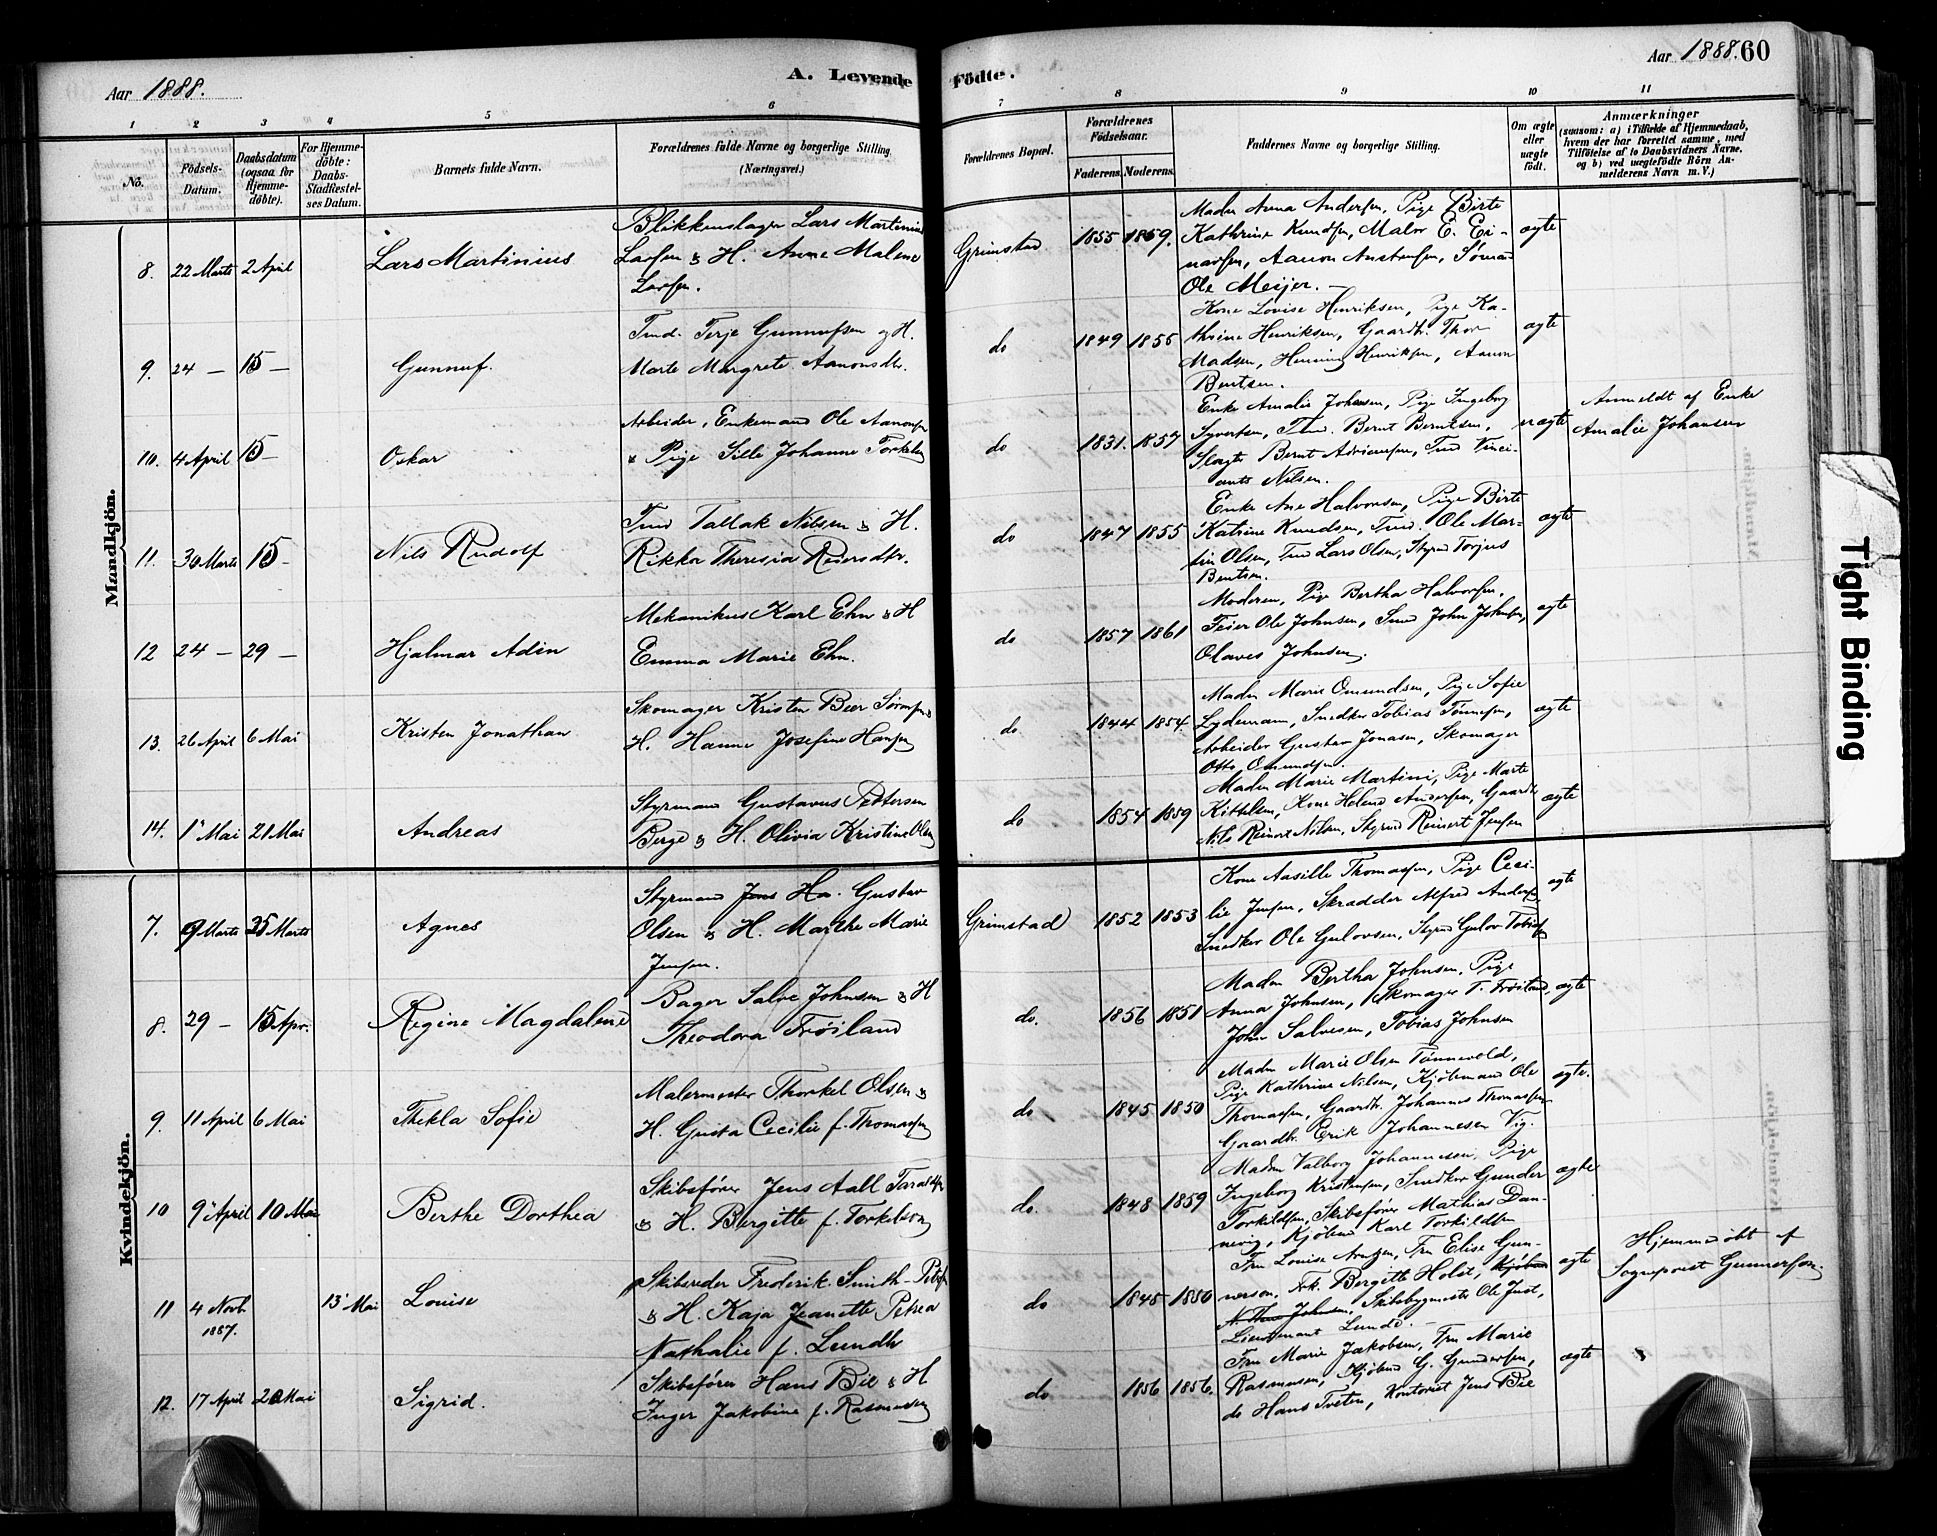 Aar 1888.
A. Levende Födte.
Aar 1888. 60
1 2 3 4 5 6 7 8 9 10 11
No.
Födsels-Datum.
Daabsdatum (ogsaa for Hjemme-döbte).
For Hjemme-döbte: Daabs-Stadfæstel-ses Datum.
Barnets fulde Navn.
Forældrenes fulde Navne og borgerlige Stilling (Næringsvei.)
Forældrenes Bopæl.
Forældrenes Födselsaar.
Faderens. Moderens.
Faddernes Navne og borgerlige Stilling.
Om ægte eller uægte født.
Anmærkninger
(saasom: a) i Tilfælde af Hjemmedaab, hvem der har forrettet samme, med Tilføielse af to Daabsvidners Navne, og b) ved uægtefödte Börn An-melderens Navn m. V.)
Mandkjön.
8. 22 Marts 2 April
Lars Martinius
Blikkenslager Lars Martinius
Larsen & H. Anne Malene
Larsen.
Grimstad 1855 1859.
Madm Anna Andersen, Pige Birte
Kathrine Knudsen, Maler E. Ei-
narsen, Aanon Anstensen, Sömand
Ole Meijer.
ægte
9. 24 — 15 —
Gunnuf.
Tmd. Terje Gunnufsen og H.
Marte Margrete Aanonsdtr.
do 1849 1855
Kone Lovise Henriksen, Pige Ka-
thrine Henriksen, Gaardb. Thor
Madsen, Henning Henriksen, Aanon
Bentsen.
ægte
10. 4 April 15 —
Oskar
Arbeider, Enkemand Ole Aanonsen
& Pige Sille Johanne Torkelsen
do 1831. 1857
Enke Amalie Johansen, Pige Ingeborg
Syvertsen, Tmd. Bernt Berntsen,
Slagter Bernt Adriansen, Tmd Vinci-
ants Nilsen.
uægte
Anmeldt af Enke
Amalie Johansen
11. 30 Marts 15 —
Nils Rudolf
Tmd Tallak Nilsen & H.
Rikka Theresia Reiersdtr.
do 1847 1855
Enke Ane Halvorsen, Pige Birte
Katrine Knudsen, Tmd. Ole Mar-
tin Olsen, Tmd Lars Olsen, Styrmd Torjus
Bentsen.
ægte
12 24 — 29 —
Hjalmar Adin
Mekanikus Karl Ehn & H
Emma Marie Ehn.
do 1857 1861
Moderen, Pige Bertha Halvorsen,
Feier Ole Johnsen, Smed John Johnsen,
Olaves Johnsen.
ægte
13. 26 April 6 Mai
Kristen Jonathan
Skomager Kristen Beer Sörensen &
H. Hanne Josefine Hansen
do 1844 1854.
Madm Marie Omundsen, Pige Sofie
Lydemann, Snedker Tobias Tönnesen,
Arbeider Gustav Jonasen, Skomager
Otto Omundsen.
ægte
14. 1' Mai 21 Mai
Andreas
Styrmand Gustavus Pettersen
Berge & H. Olivia Kristine Olsen
do 1854 1859
Madm Marie Martini, Pige Marte
Kittelsen, Kone Helene Andersen, Gaardb
Nils Reinert Nilsen, Styrmd Reinert Jensen
ægte
Kvindekjön.
7. 9 Marts 25 Marts
Agnes
Styrmand Jens Ha. Gustav
Olsen & H. Marthe Marie
Jensen.
Grimstad 1852 1853
Kone Aasille Thomassen, Pige Ceci-
lie Jensen, Skrædder Alfred Andersen
Snedker Ole Gulovsen, Styrmd Gulov Tobias
ægte
8. 29 — 15 Apr.
Regine Magdalene
Bager Salve Johnsen & H
Theodora Fröiland
do. 1856 1851
Madm Bertha Johnsen, Pige
Anna Johnsen, Skomager T. Fröiland,
John Salvesen, Tobias Johnsen
ægte
9. 11 April 6 Mai
Thekla Sofie
Malermester Thorkel Olsen &
H. Gusta Cecilie f. Thomassen
do 1845 1850
Madm Marie Olsen Tönnevold,
Pige Kathrine Nilsen, Kjöbmand Ole
Thomassen, Gaardb. Johannes Thomassen
Gaardb. Erik Johannesen Vig.
ægte.
10 9 April 10 Mai
Berthe Dorthea
Skibsfører Jens Aall
& H. Bergitte f. Torkelsen
do. 1848 1859
Madm Valborg Johannesen, Pige
Ingeborg Kristensen, Snedker Gunder
Torkildsen, Skibsfører Mathias Dan-
nevig, Kjöbmd Karl Torkildsen
ægte
11 4 Novb. 1887. 13' Mai
Louise
Skibsreder Frederik Smith-Petersen
& H. Kaja Jeanette Petrea
Nathalie f. Lunde
do 1845 1850
Fru Louise Arntzen, Fru Elise Gun-
nerson, Frk. Bergitte Holst, Kjöbm
Johnsen, Skibsbygmester Ole Just,
Lieutenant Lunde.
ægte
Hjemmedöbt af
Sogneprest Gunnerson.
12. 17 April 20 Mai
Sigrid.
Skibsfører Hans Bie & H
Inger Jakobine f. Rasmussen
do. 1856 1856.
Fru Marie Jakobsen, Fru Marie
Rasmussen, Kjöbmd G. Gundersen,
do Hans Tveten, Kontorist Jens Bie
ægte
Tight Binding